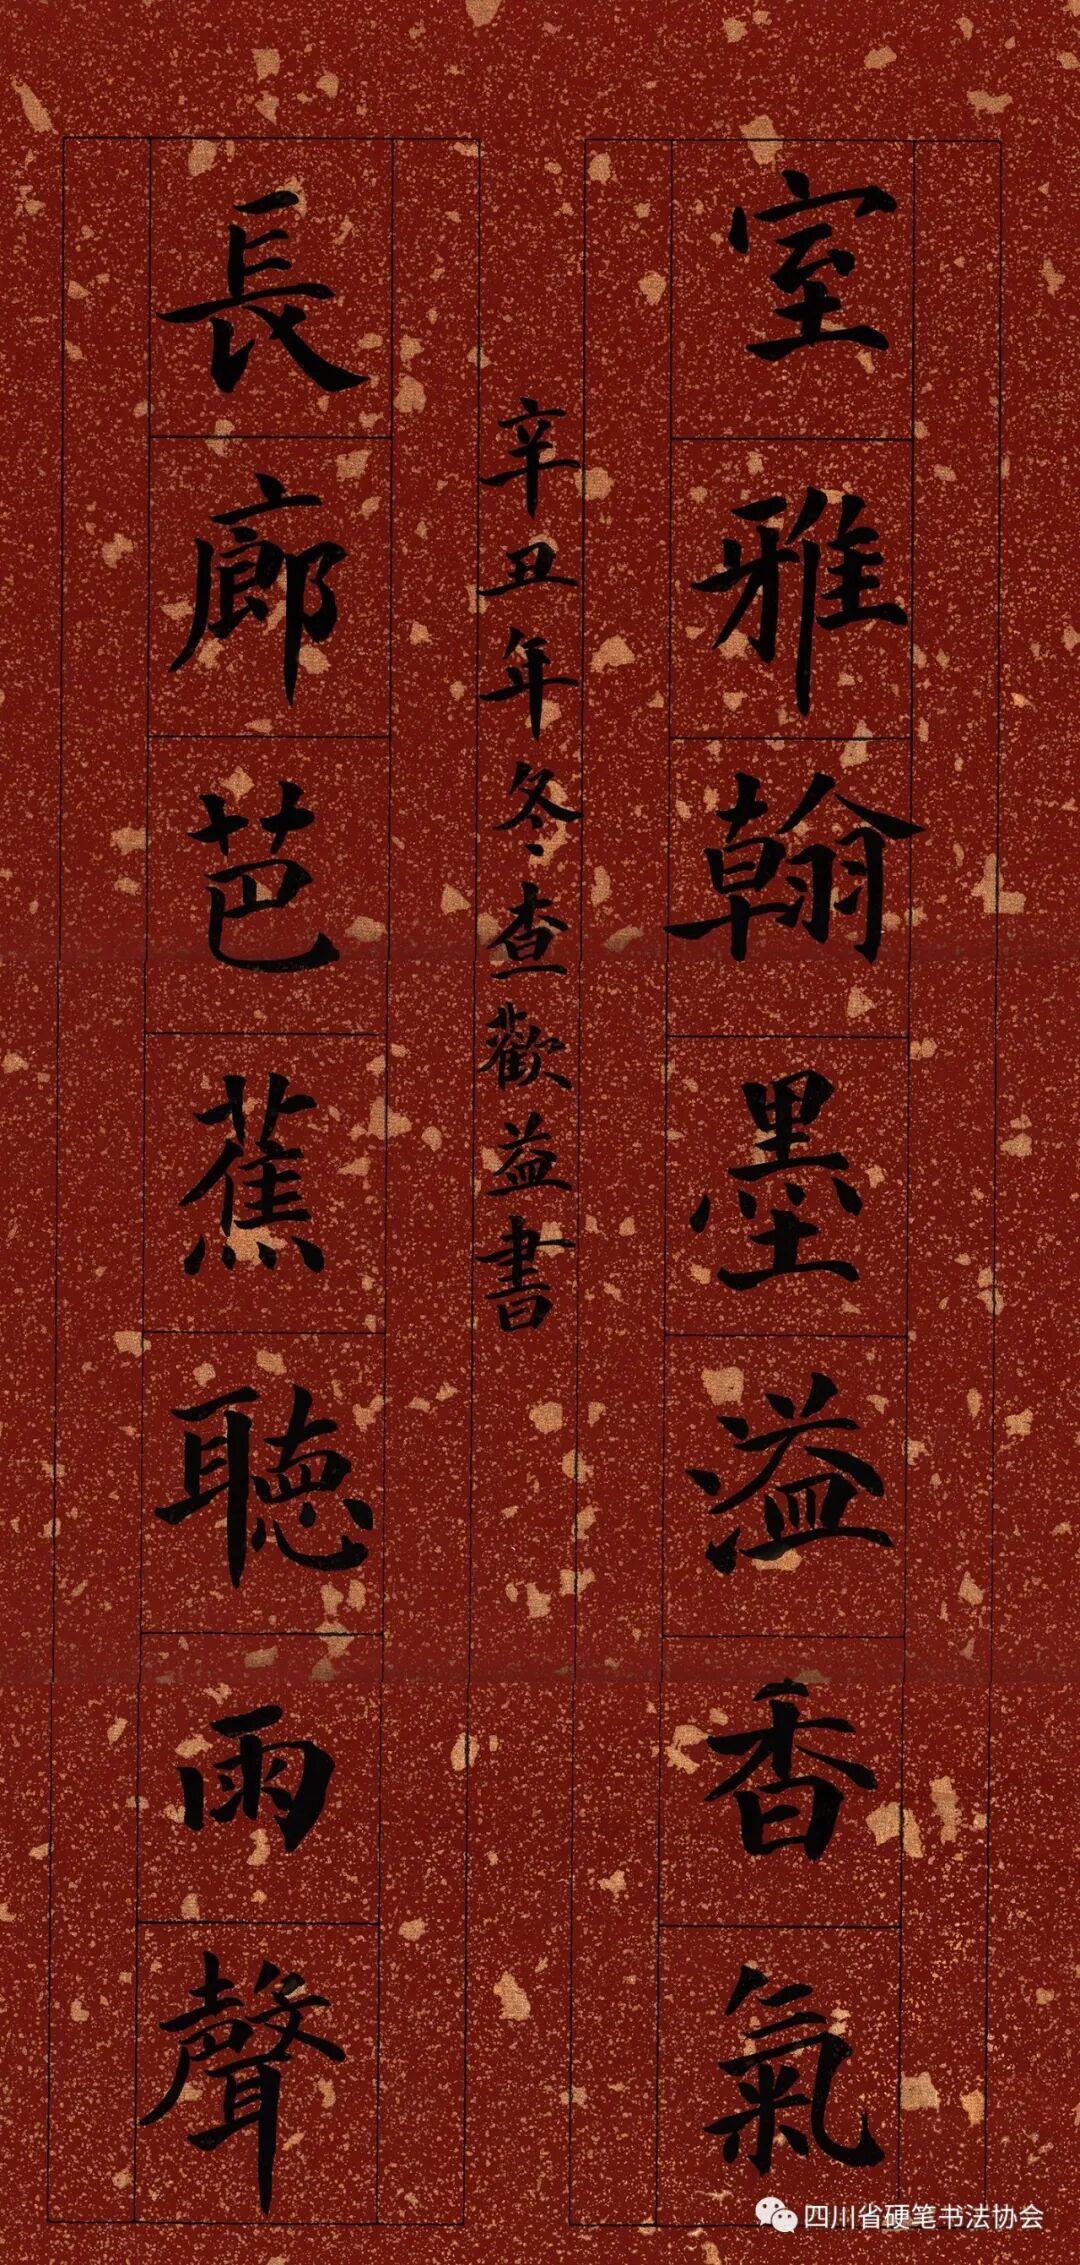 室雅翰墨溢香氣
長廊芭蕉聽雨聲
辛丑年冬查歡益書
四川省硬笔书法协会